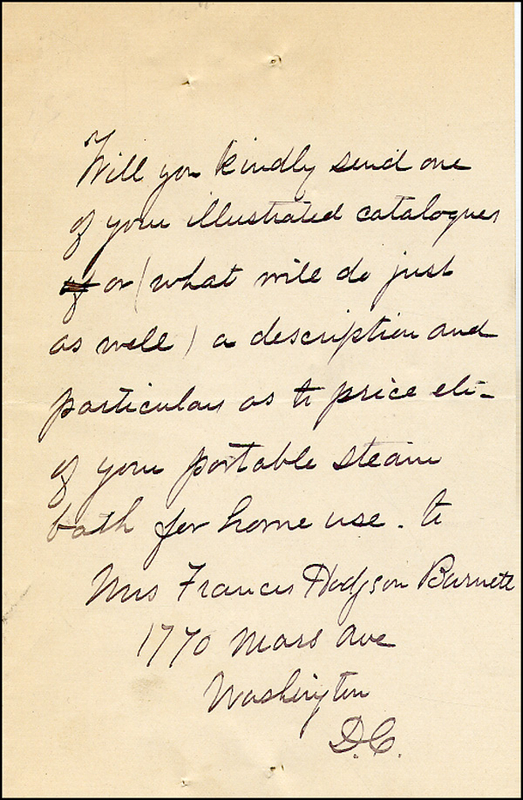 Will you kindly send one
of your illustrated catalogues
of or (what will do just
as well) a description and
particulars as to price etc-
of your portable steam
bath for home use. to
Mrs Frances Hodgson Burnett
1770 Mass Ave
Washington
D.C.